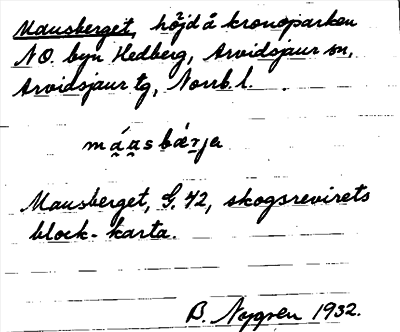 Mausberget, höjd å kronoparken
NO. byn Hedberg, Arvidsjaur sn,
Arvidsjaur tg, Norrb. l.
máu̯sbærja
Mausberget, G. 42, skogsrevirets
block-karta.
B. Nygren 1932.